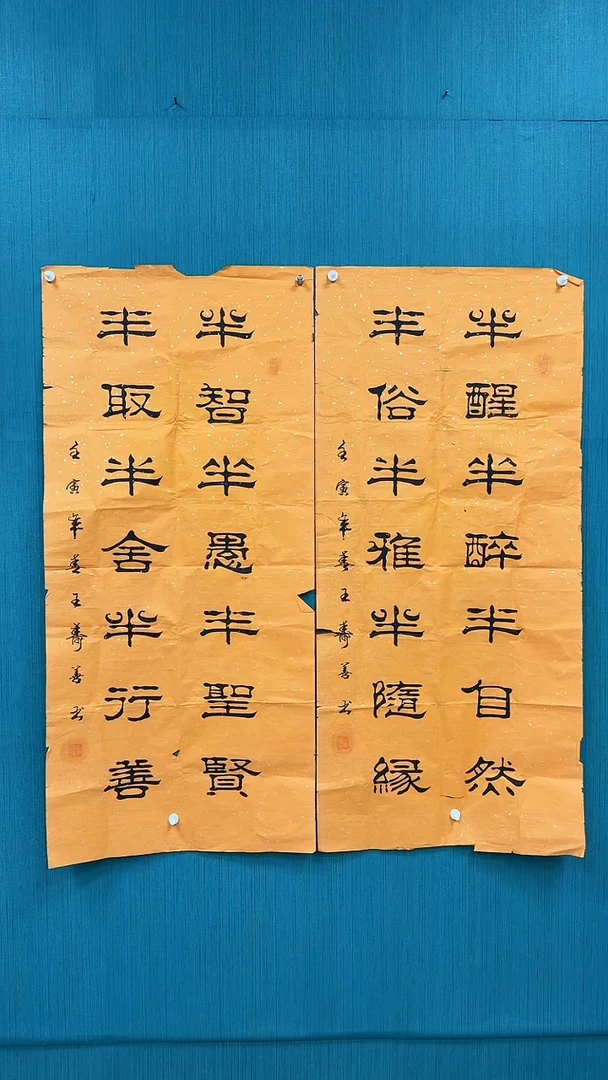 半醒半醉半自然
半俗半雅半隨緣
壬寅年
王壽善书
半智半愚半聖賢
半取半舍半行善
壬寅年
王壽善书